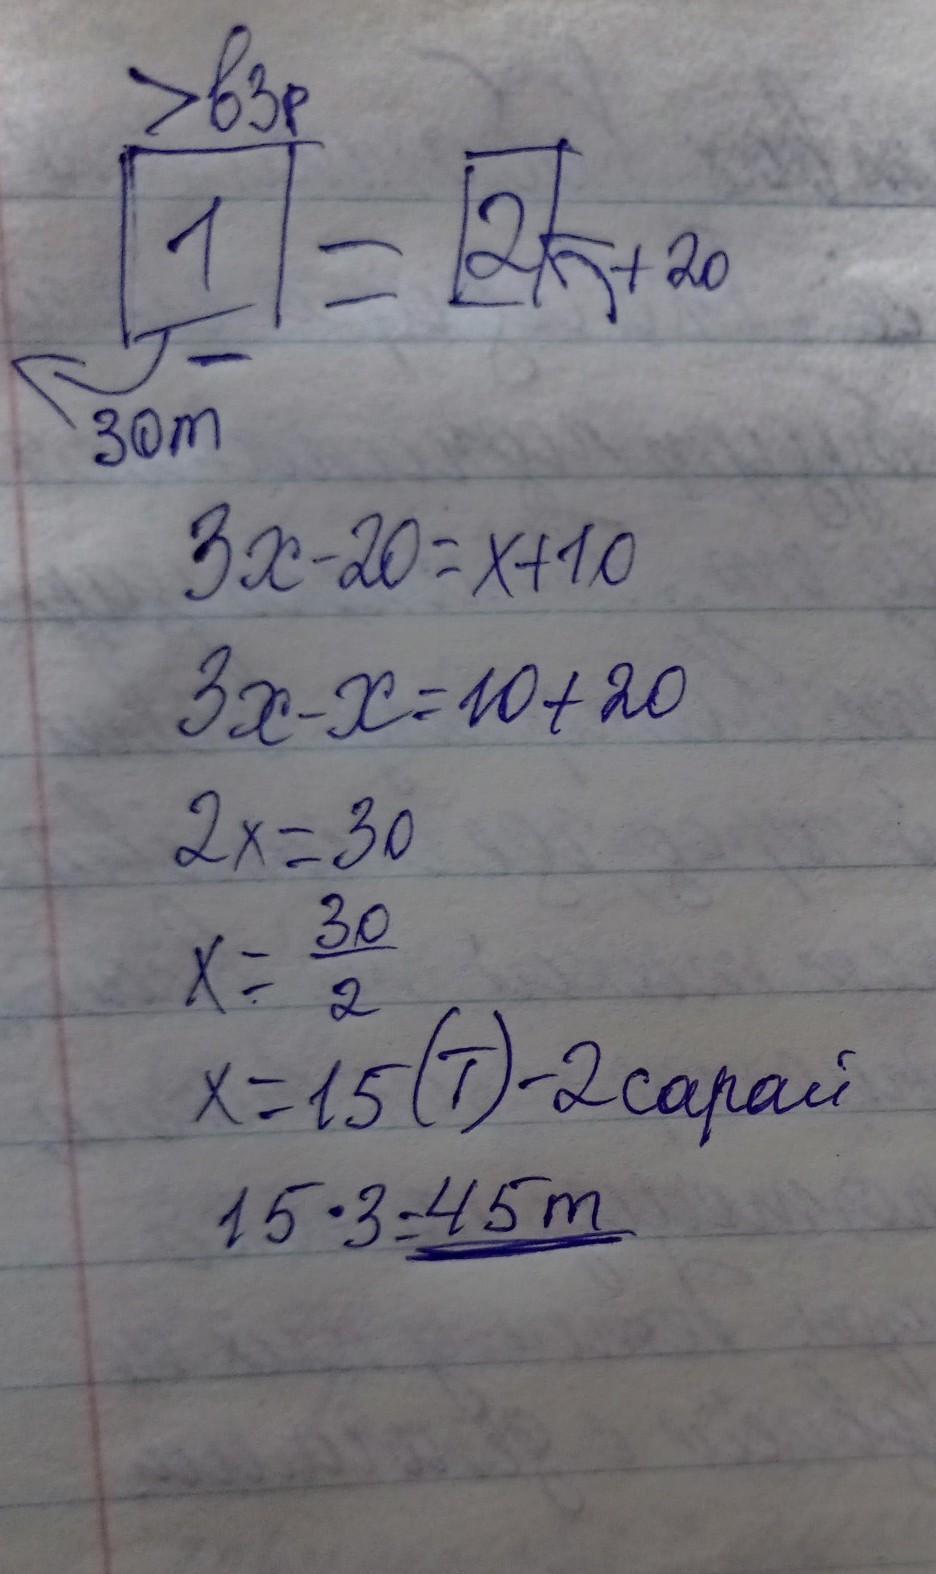 >в 3р
1 = 2 + 20
-
30т
3x-20=x+10
3x-x=10+20
2x=30
x=30/2
x=15(т)-2сарай
15·3=45т